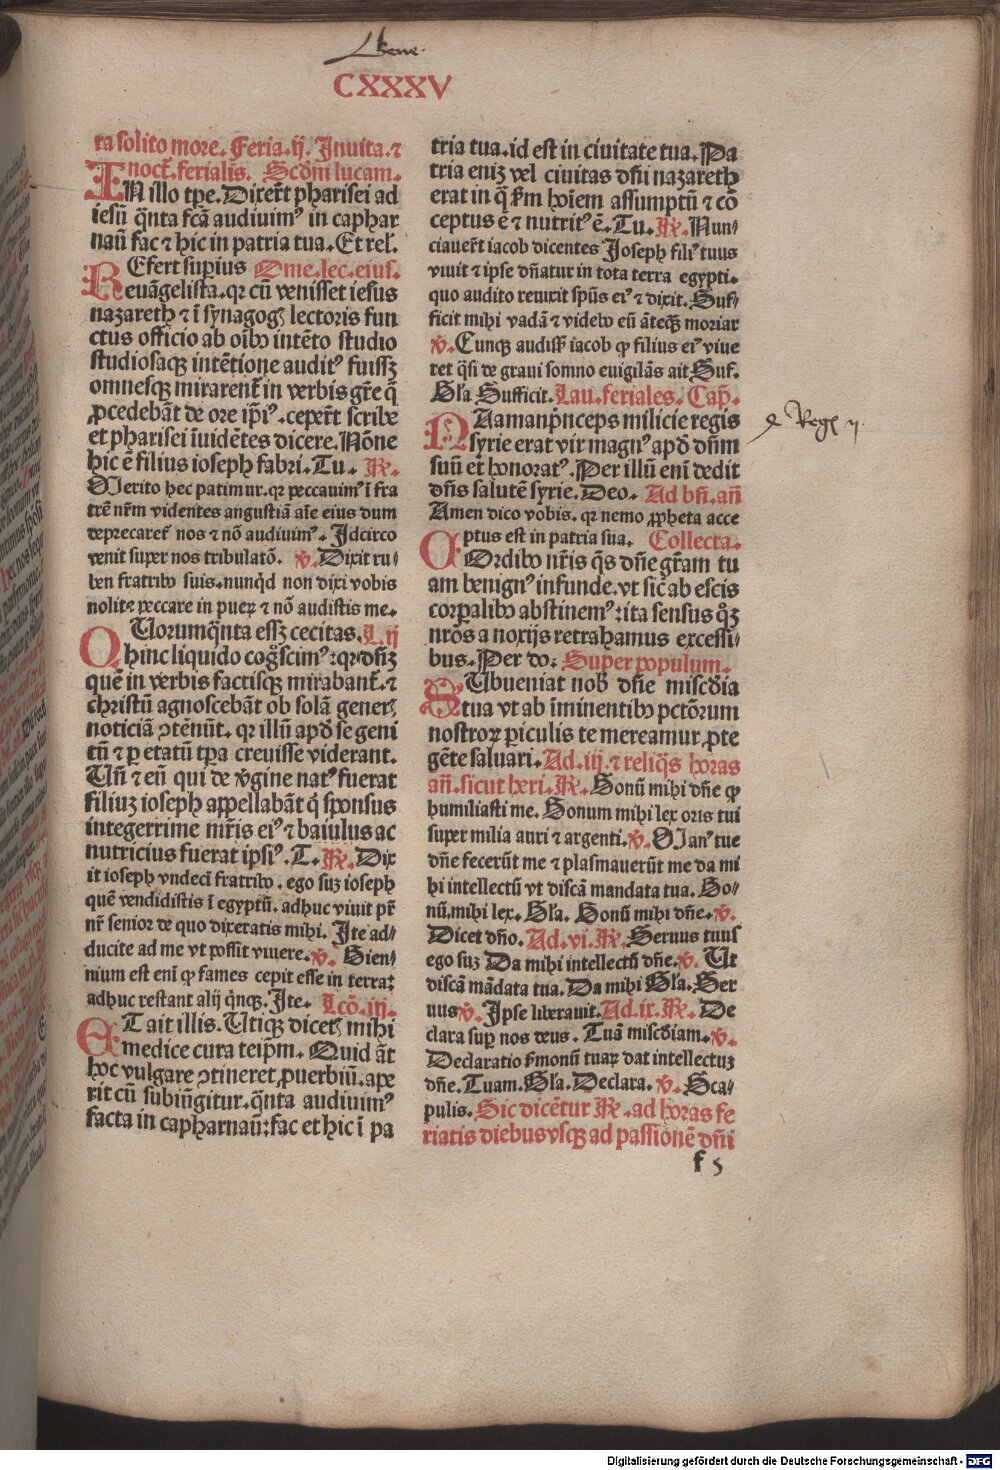 CXXXV
ta solito more. Feria .ij. Inuita. ⁊
noct̄. ferialis. Scd̄m lucam.
IN illo tp̄e. Dixer̄t pharisei ad
iesū q̄nta fc̄a audiuimꝰ in caphar
naū fac ⁊ hic in patria tua. Et rel̄.
REfert supius Ome. lec. eius.
euāgelista. qꝛ cū venisset iesus
nazareth ⁊ ī synagogꝭ lectoris fun
ctus officio ab oībꝰ intēto studio
studiosaqꝫ intētione auditꝰ fuissꝫ
omnesqꝫ mirarent̄ in verbis gr̄e q̄
ꝓcedebāt de ore ip̄iꝰ. ceper̄t scribe
et pharisei īuidētes dicere. Nōne
hic ē filius ioseph fabri. Tu. ℟.
Merito hec patimur. qꝛ peccauimꝰ ī fra
trē nr̄m videntes angustiā aīe eius dum
deprecaret̄ nos ⁊ nō audiuimꝰ. Idcirco
venit super nos tribulatō. ℣. Dixit ru/
ben fratribꝰ suis. nunqd̄ non dixi vobis
nolite peccare in pueꝝ ⁊ nō audistis me.
QUorum q̄nta essꝫ cecitas. L. ij
hinc liquido cogscimꝰ: qꝛ dn̄ꝫ
quē in verbis factisqꝫ mirabant̄. ⁊
christū agnoscebāt ob solā generꝭ
noticiā ↄtēnūt. qꝛ illū apd̄ se geni
tū ⁊ ꝑ etatū tp̄a creuisse viderant.
Un̄ ⁊ eū qui de v̄gine natꝰ fuerat
filiuꝫ ioseph appellabāt q̄ sponsus
integerrime mr̄is eiꝰ ⁊ baiulus ac
nutricius fuerat ipsiꝰ. T. ℟. Dix
it ioseph vndecī fratribꝰ. ego suꝫ ioseph
quē vendidistis ī egyptū. adhuc viuit pr̄
nr̄ senior de quo dixeratis mihi. Ite ad/
ducite ad me vt possit viuere. ℣. Bien/
nium est enī ꝙ fames cepit esse in terra:
adhuc restant alij q̄nqꝫ. Ite. Lcō. iij.
ET ait illis. Utiqꝫ dicetꝭ mihi
medice cura teip̄m. Quid āt
hoc vulgare ↄtineret ꝓuerbiū. ape
rit cū subiūgitur. q̄nta audiuimꝰ
facta in capharnaū: fac et hic ī pa
tria tua. id est in ciuitate tua. Pa
tria eniꝫ vel ciuitas dn̄i nazareth
erat in q̄ ẜm hoīem assumptū ⁊ cō
ceptus ē ⁊ nutritꝰ ē. Tu. ℟. Nun/
ciauer̄t iacob dicentes Joseph filiꝰ tuus
viuit ⁊ ipse dn̄atur in tota terra egypti.
quo audito reuixit sp̄us eiꝰ ⁊ dixit. Suf/
ficit mihi vadā ⁊ videbo eū āteqꝫ moriar
℣. Cunqꝫ audissꝫ iacob ꝙ filius eiꝰ viue
ret q̄si de graui somno euigilās ait Suf.
Gl̄a Sufficit. Lau. feriales. Cap̄.
NAaman p̄nceps milicie regis
syrie erat vir magnꝰ apd̄ dn̄m
suū et honoratꝰ. Per illū enī dedit
dn̄s salutē syrie. Deo. Ad bn̄. an̄
Amen dico vobis. qꝛ nemo ꝓpheta acce
ptus est in patria sua. Collecta.
COrdibꝰ nr̄is q̄s dn̄e gr̄am tu
am benignꝰ infunde. vt sic̄ ab escis
corꝑalibꝰ abstinemꝰ: ita sensus qꝫ
nr̄os a noxijs retrahamus excessi/
bus. Per do: Super populum.
SUbueniat nob̄ dn̄e misc̄dia
tua vt ab īminentibꝰ pctōrum
nostroꝝ ꝑiculis te mereamur ꝓte
gēte saluari. Ad .iij. ⁊ reliqs̄ horas
an̄. sicut heri. ℟. Bonū mihi dn̄e ꝙ
humiliasti me. Bonum mihi lex oris tui
super milia auri ⁊ argenti. ℣. Manꝰ tue
dn̄e fecerūt me ⁊ plasmauerūt me da mi
hi intellectū vt discā mandata tua. Bo/
nū. mihi lex. Gl̄a. Bonū mihi dn̄e. ℣.
Dicet dn̄o. Ad .vi. ℟. Seruus tuus
ego suꝫ Da mihi intellectū dn̄e. ℣. Ut
discā mādata tua. Da mihi Gl̄a. Ser
uus ℣. Ipse liberauit. Ad .ix. ℟. De
clara suꝑ nos deus. Tuā misc̄diam. ℣.
Declaratio ẜmonū tuaꝝ dat intellectuꝫ
dn̄e. Tuam. Gl̄a. Declara. ℣. Sca/
pulis. Sic dicētur ℟. ad horas fe
riatis diebus vsqꝫ ad passionē dn̄i
f 5
Digitalisierung gefördert durch die Deutsche Forschungsgemeinschaft - DFG